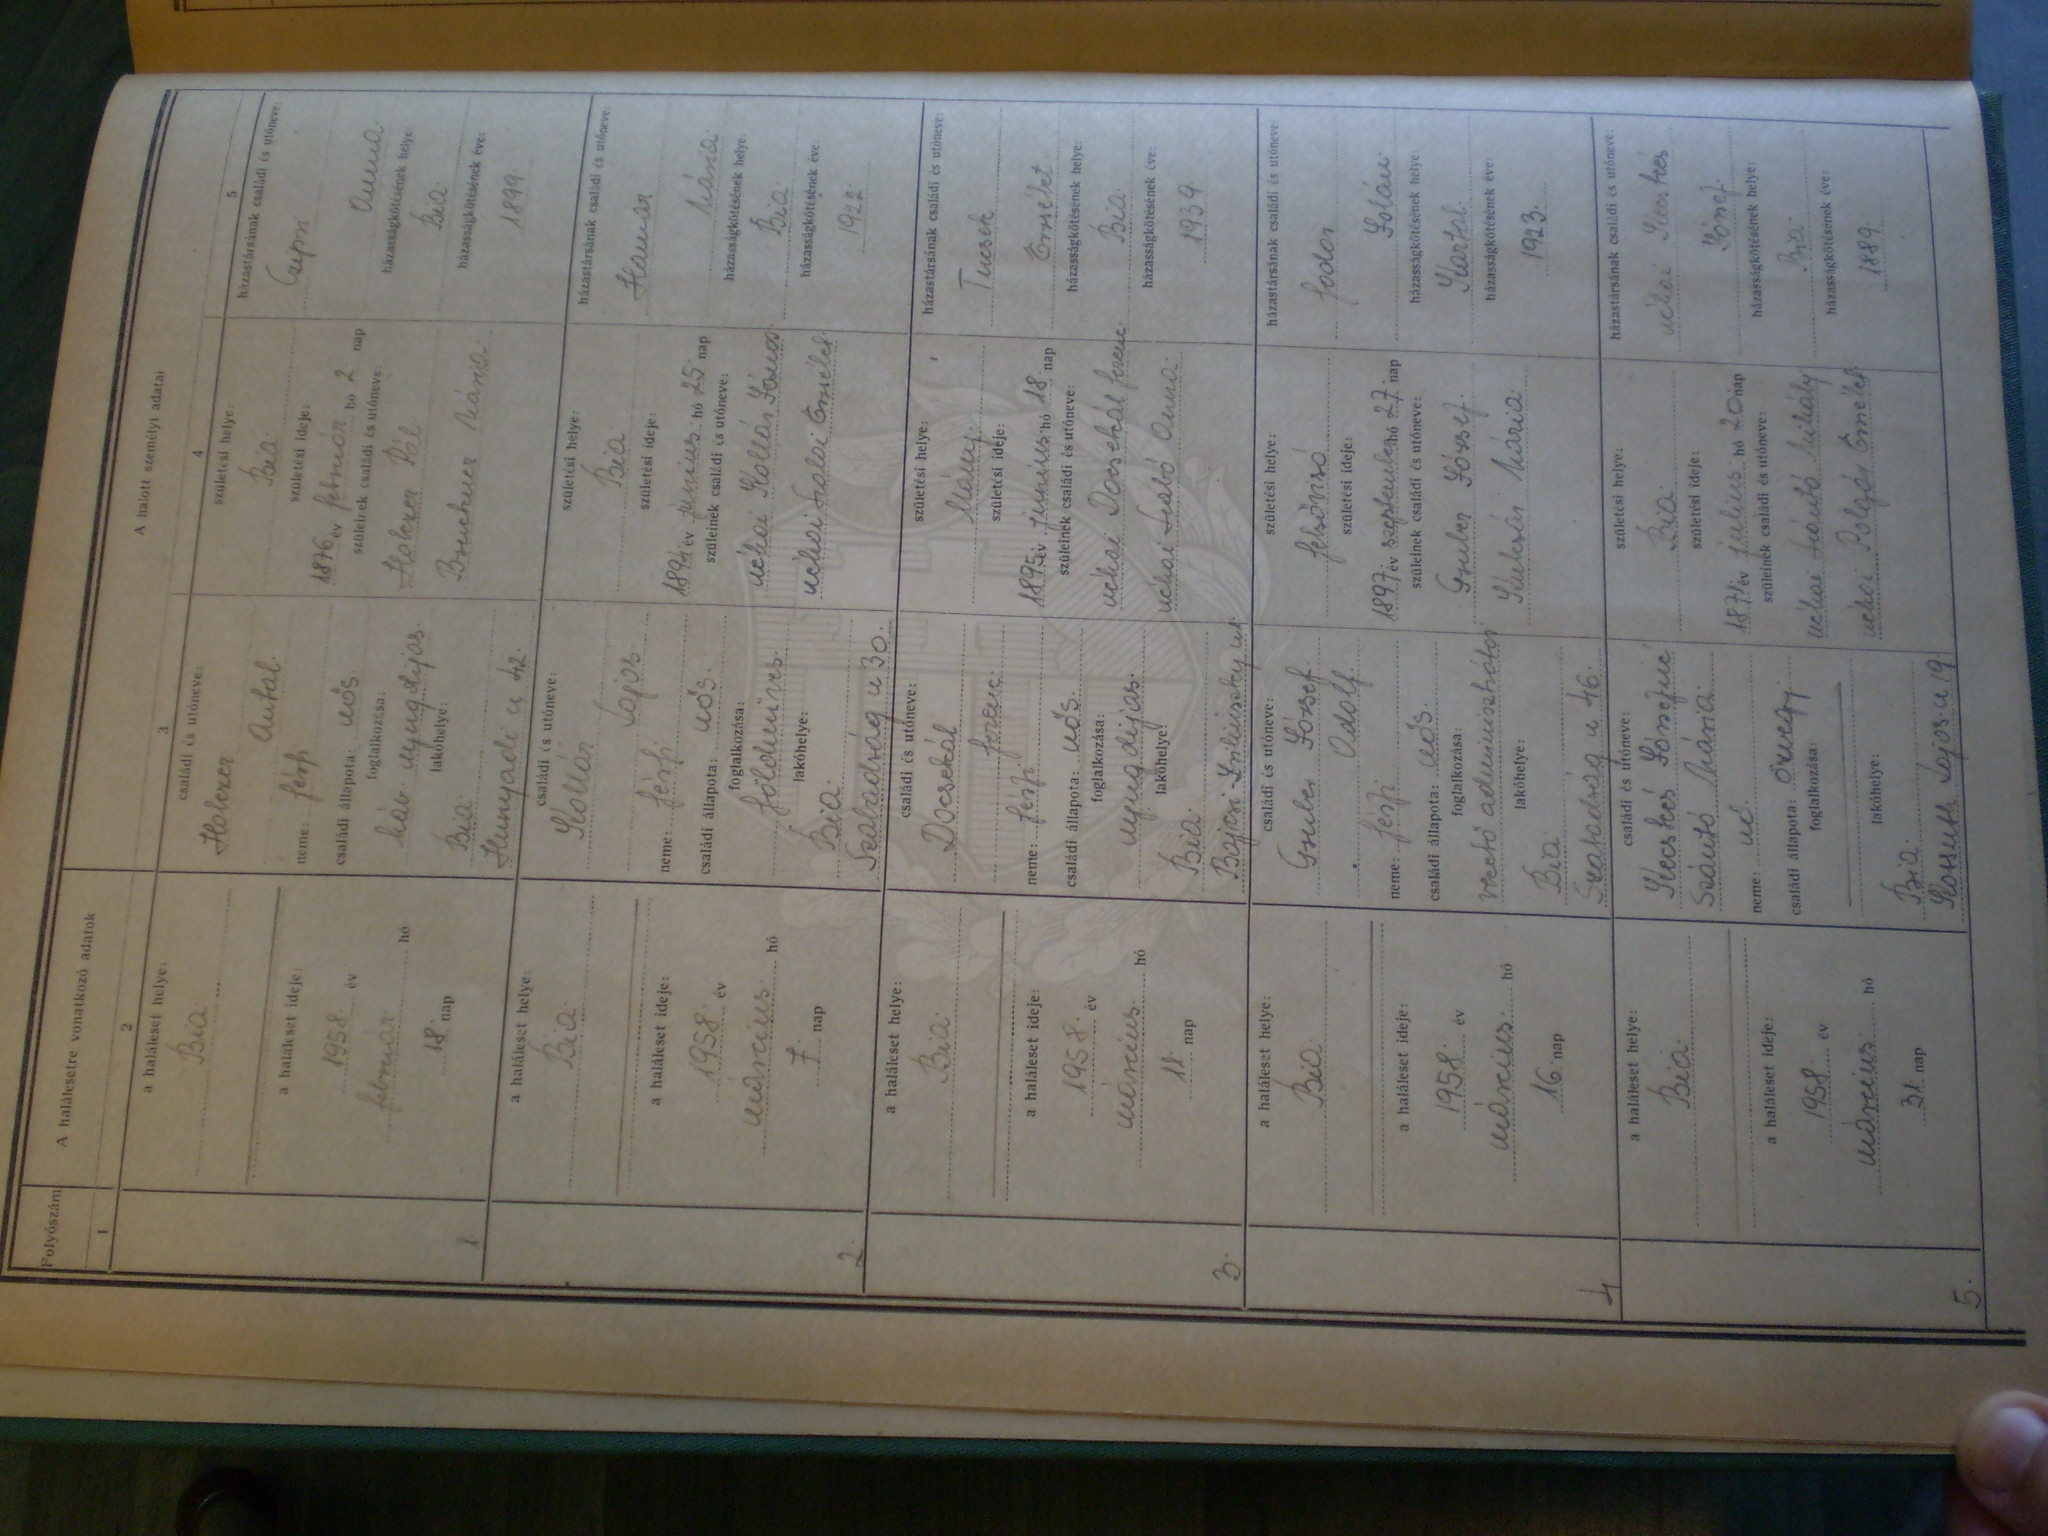 Folyószám
A halálesetre vonatkozó adatok
A halott személyi adatai
1
2
3
4
5
1.
a haláleset helye:
Bia.
a haláleset ideje:
1958. év
február hó
18. nap
családi és utóneve:
Holczer
Antal.
neme: férfi
családi állapota: nős
foglalkozása:
háv. nyugdíjas.
lakóhelye:
Bia.
Hunyadi u 42.
születési helye:
Bia.
születési ideje:
1876. év február hó 2 nap
szüleinek családi és utóneve:
Holczer Pál
Mária.
házastársának családi és utóneve:
Anna.
házasságkötésének helye:
Bia.
házasságkötésének éve:
1899.
2.
a haláleset helye:
Bia.
a haláleset ideje:
1958. év
március. hó
7. nap
családi és utóneve:
Kollár
Lajos.
neme: férfi.
családi állapota: nős.
foglalkozása:
földmíves.
lakóhelye:
Bia.
Szabadság u 30.
születési helye:
Bia.
születési ideje:
1894. év június. hó 25. nap
szüleinek családi és utóneve:
néhai Kollár János.
néhai Erzsébet
házastársának családi és utóneve:
Mária.
házasságkötésének helye:
Bia.
házasságkötésének éve:
1922.
3.
a haláleset helye:
Bia.
a haláleset ideje:
1958. év
március. hó
11. nap
családi és utóneve:
Docsekál
Ferenc.
neme: férfi
családi állapota: nős.
foglalkozása:
nyugdíjas.
lakóhelye:
Bia.
Bajcsi-Zsilinszky u.
születési helye:
Mány.
születési ideje:
1895. év június. hó 18. nap
szüleinek családi és utóneve:
néhai Docsekál Ferenc.
néhai Szabó Anna.
házastársának családi és utóneve:
Tucsek
Erzsébet.
házasságkötésének helye:
Bia.
házasságkötésének éve:
1939.
4
a haláleset helye:
Bia.
a haláleset ideje:
1958. év
március. hó
16. nap
családi és utóneve:
Gruber József
Adolf.
neme: férfi.
családi állapota: nős.
foglalkozása:
vezető adminisztrátor
lakóhelye:
Bia.
Szabadság u 46.
születési helye:
Felsővisó
születési ideje:
1897. év szeptember hó 27. nap
szüleinek családi és utóneve:
Gruber József.
Mária.
házastársának családi és utóneve:
Fodor
házasságkötésének helye:
házasságkötésének éve:
1923.
5.
a haláleset helye:
Bia.
a haláleset ideje:
1958. év
március. hó
31. nap
családi és utóneve:
Kecskés Józsefné
Szántó Mária.
neme: nő.
családi állapota: özvegy.
foglalkozása:
lakóhelye:
Bia.
Kossuth Lajos u 19.
születési helye:
Bia.
születési ideje:
1871. év július hó 20 nap
szüleinek családi és utóneve:
néhai Szántó Mihály
néhai Polgár Erzsébet
házastársának családi és utóneve:
néhai Kecskés
József.
házasságkötésének helye:
Bia.
házasságkötésének éve:
1889.